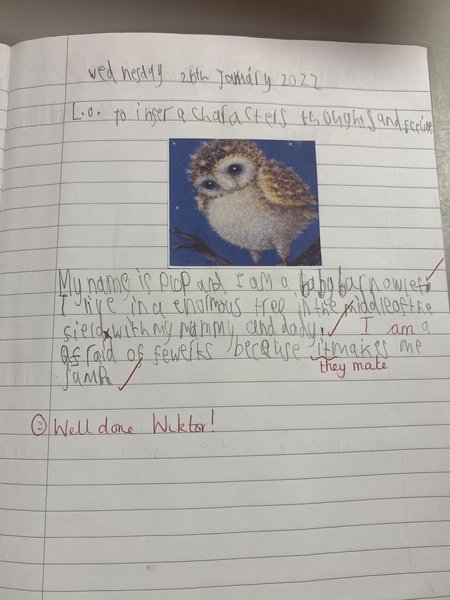 Wednesday 26th January 2022
L.O. To inser a characters thoughts and feelings
My name is Plop and I am a baby barn owlet.
I live in a enormous tree in the middle of the
field with my mammy and dady. I am a
afraid of fewerks because it makes me
they make
jump.
Well done Wiktor!